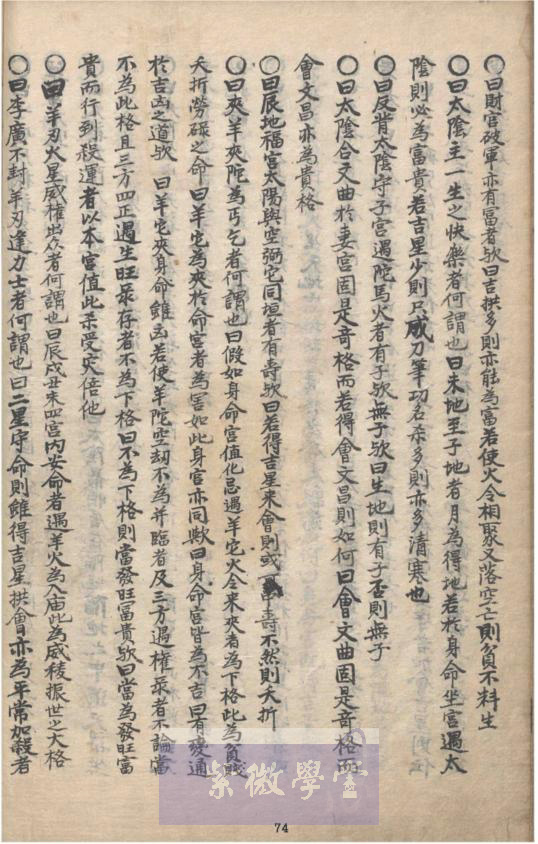 〇曰財官破軍亦有富者欤曰吉拱多則亦能為富若使火令相聚又落空亡則貧不料生
〇曰太陰主一生之快樂者何謂也曰未地至子地者月為得地若於身命坐宮遇太
陰則必為富貴若吉星少則只威刀筆功名杀多則亦多清寒也
〇曰反背太陰守子宮遇陀馬火者有子欤無子欤曰生地則有子否則無子
〇曰太陰合文曲於妻宮固是竒格而若得會文昌則如何曰會文曲固是竒格而
會文昌亦為貴格
〇曰辰地福宮太陽與空弼它同垣者有壽欤曰若得吉星来會則或中壽不然則夭折
〇曰夾羊夾陀為丐乞者何謂也曰假如身命宮值化忌遇羊它火令来夾者為下格此為貧賎
夭折勞碌之命曰羊它為夾於命宮者為害如此身宮亦同欤曰身命宮皆為不吉曰有变通
於吉凶之道欤 曰羊它夾身命雖凶若使羊陀空刼不為并臨者及三方遇權彔者不論當
不為此格且三方四正遇生旺彔存者不為下格曰不為下格則當發旺冨貴欤曰當為發旺富
貴而行到殺運者以本宮值此杀受灾倍他
〇曰羊刃火星威權出众者何謂也曰辰戍丑未四宮內安命者遇羊火為入庙此為威稜振世之大格
〇曰李廣不封羊刃逢力士者何謂也曰二星守命則雖得吉星拱會亦為平常加殺者
紫微學堂
74